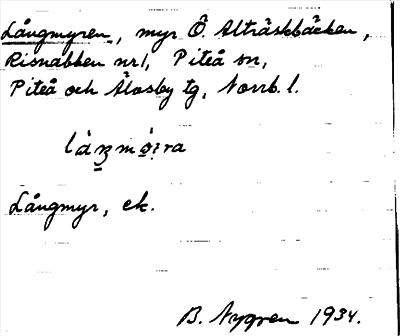 Långmyren, myr Ö. Alträskbäcken,
Risnabben nr 1, Piteå sn,
Piteå och Älvsby tg, Norrb. l.
Långmyr, ek.
B. Nygren 1934.